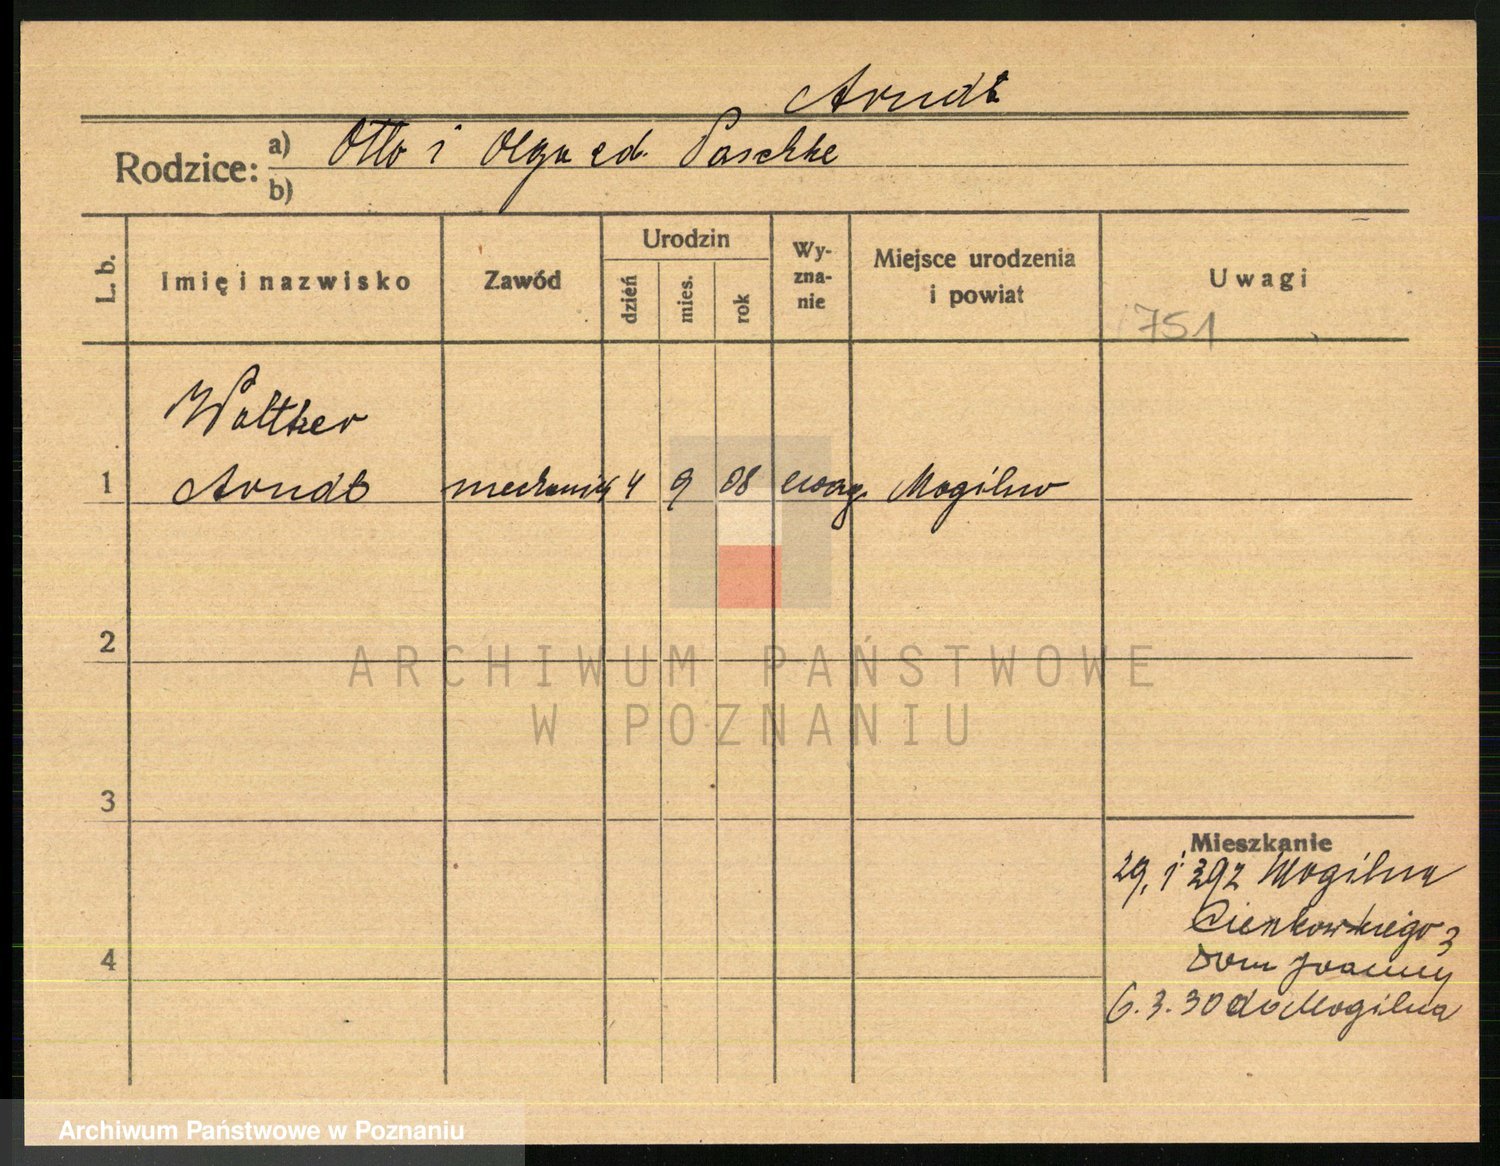 Arndt
Rodzice: a) Otto i Olga zd. Paschke
b)
L. b.
Imię i nazwisko
Zawód
Urodzin
dzień
mies.
rok
Wy-
zna-
nie
Miejsce urodzenia
i powiat
Uwagi
751
Walther
1 Arndt mechanik 4 9 08 ewag. Mogilno
2
3
4
Mieszkanie
29. 1 Mogilna
Cienkowskiego 3
dom
6.3.30 do Mogilna
ARCHIWUM PAŃSTWOWE
W POZNANIU
Archiwum Państwowe w Poznaniu